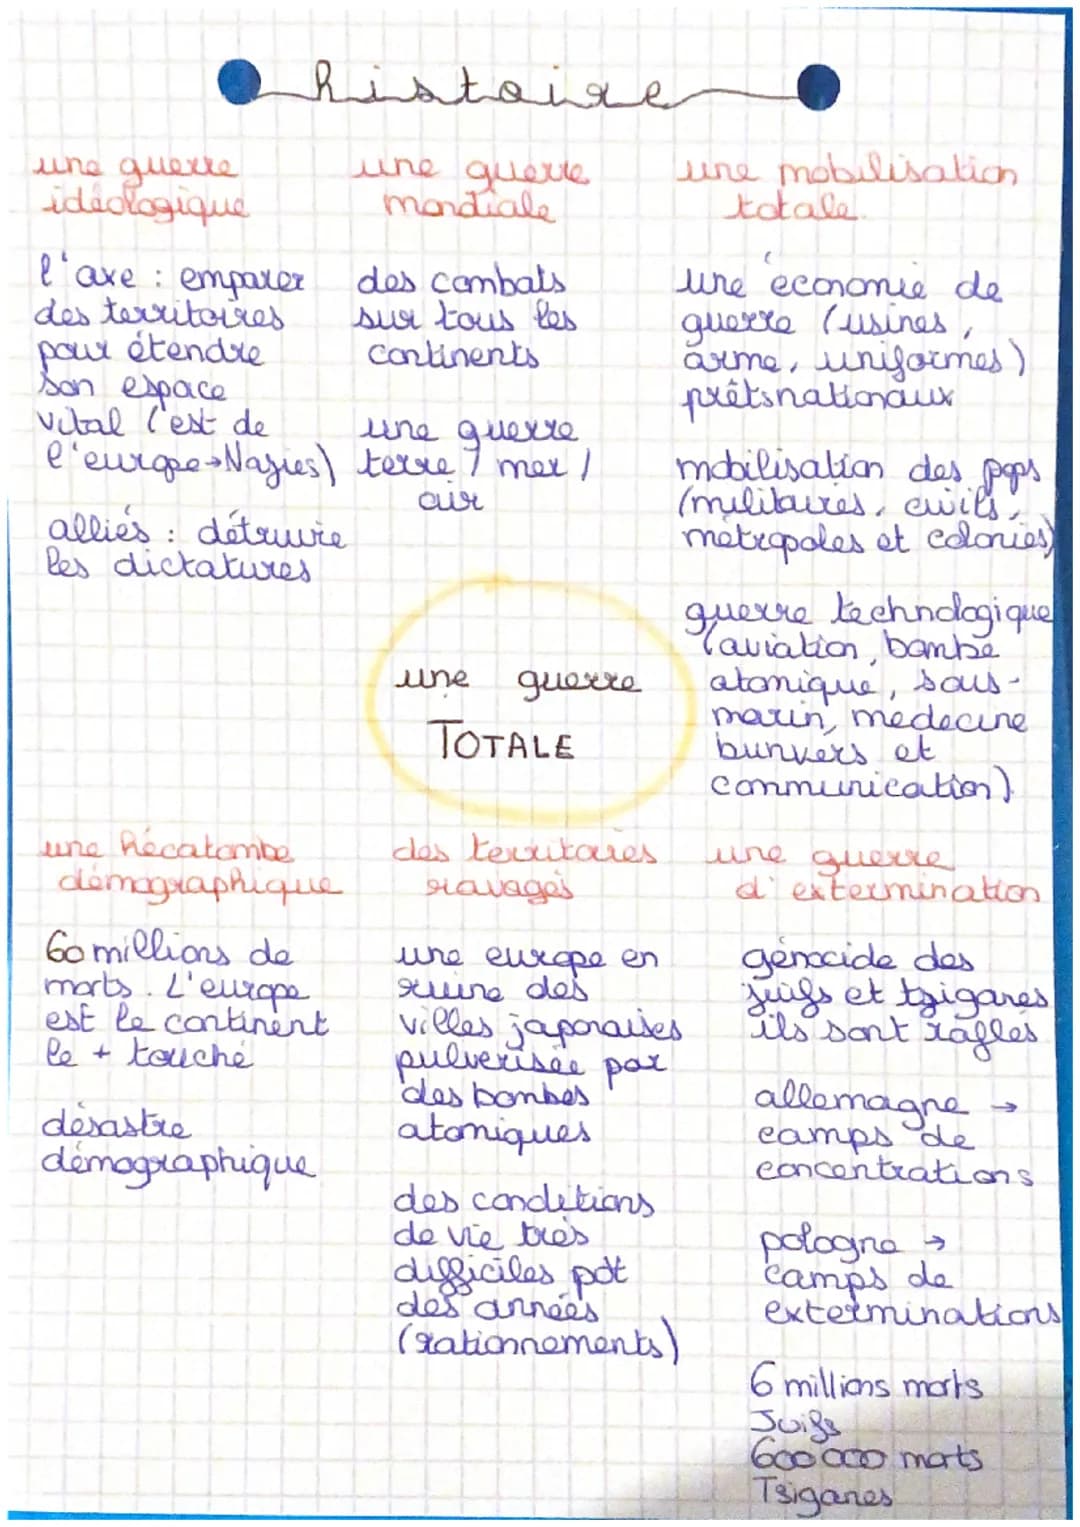 histoire
une guerre
idéologique
l'axe : emparer
des territoires
pour étendre
son espace
vital (est de
l'europe→Nazies)
alliés : détruire
les dictatures
une guerre
mondiale
des combats
sur tous les
continents
une guerre
terre / mer /
air
une mobilisation
totale.
une économie de
guerre (usines,
arme, uniformes)
prêts nationaux
mobilisation des pops
(militaires, civils,
métropoles et colonies)
guerre technologique
(aviation, bombe
atomique, sous-
marin, médecine
bunkers et
communication)
une guerre
TOTALE
une hécatombe
démographique
60 millions de
morts. L'europe
est le continent
le + touché
désastre
démographique
des territoires
ravagés
une europe en
ruine des
villes japonaises
pulverisée par
des bombes
atomiques
des conditions
de vie très
difficiles pdt
des années
(rationnements)
une guerre
d'extermination
génocide des
juifs et tziganes
ils sont raflés
allemagne →
camps de
concentrations
pologne →
camps de
exterminations
6 millions morts
Juifs
600 000 morts
Tsiganes